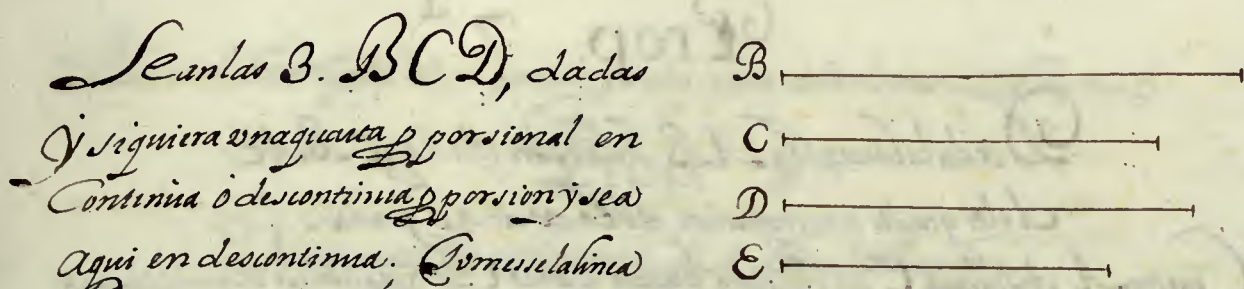 Sean las 3. B C D, dadas
y siquiera vna quarta pporsional en
Continua o descontinua pporsion y sea
aqui en descontinua. Tomesse la linea
B
C
D
E